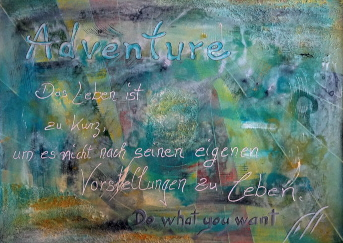 Adventure
Das Leben ist
zu Kurz,
um es nicht nach seinen eigenen
Vorstellungen zu Leben.
Do what you want